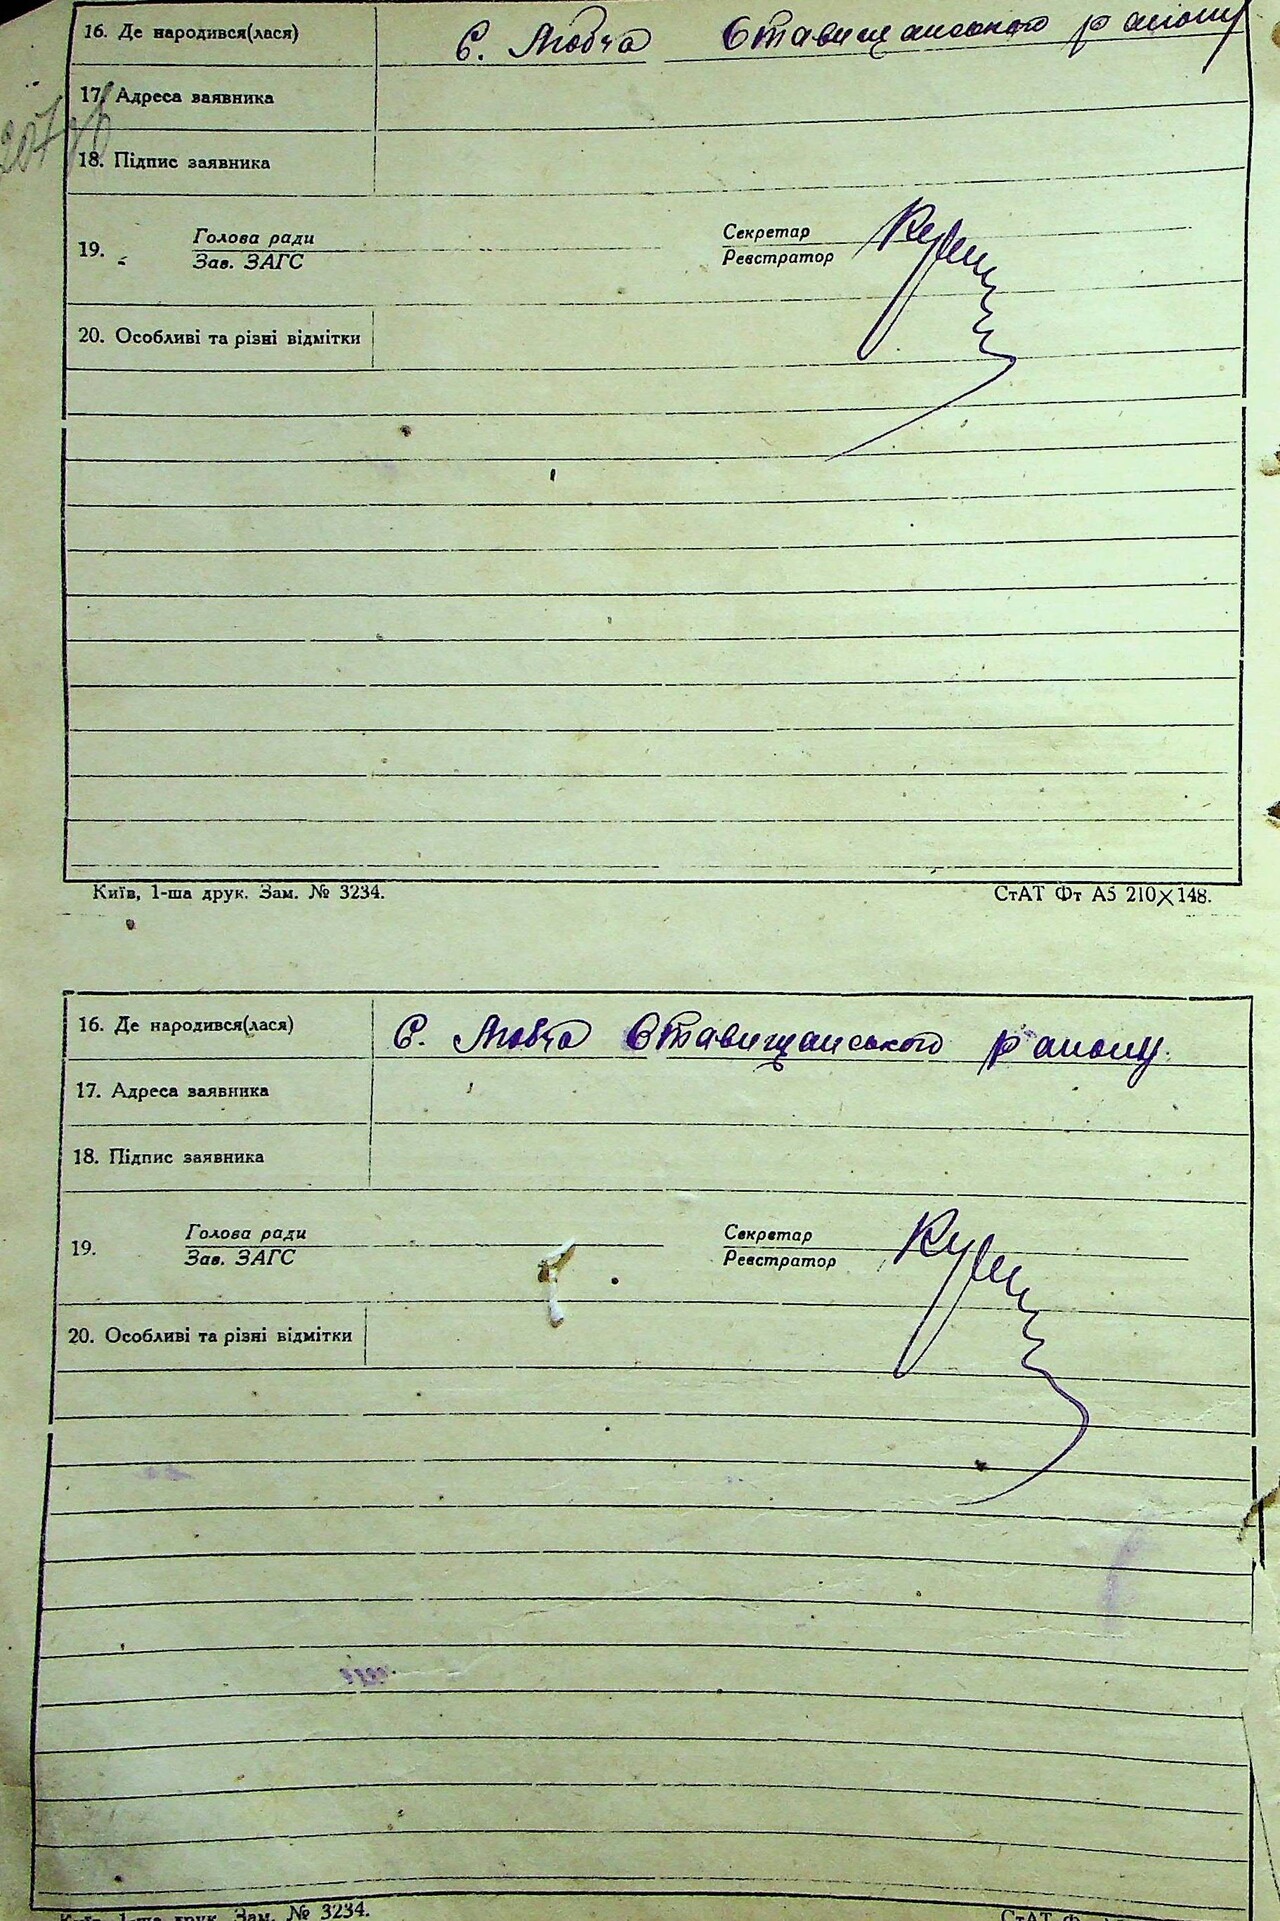 16. Де народився(лася) с. Любча Ставищанського району
17. Адреса заявника
18. Підпис заявника
19. Голова ради Секретар
Зав. ЗАГС Реєстратор
20. Особливі та різні відмітки
Київ, 1-ша друк. Зам. № 3234. СтАТ Фт А5 210×148.
16. Де народився(лася) с. Любча Ставищанського району.
17. Адреса заявника
18. Підпис заявника
19. Голова ради Секретар
Зав. ЗАГС Реєстратор
20. Особливі та різні відмітки
Київ, 1-ша друк. Зам. № 3234. СтАТ